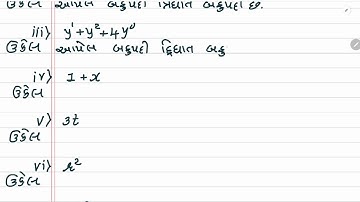 ઉકેલ આપેલ બહુપદી ત્રિઘાત બહુપદી છે.
iii) y¹+y²+4y⁰
ઉકેલ આપેલ બહુપદી દ્વિઘાત બહુ
iv) 1+x
ઉકેલ
v) 3t
ઉકેલ
vi) r²
ઉકેલ